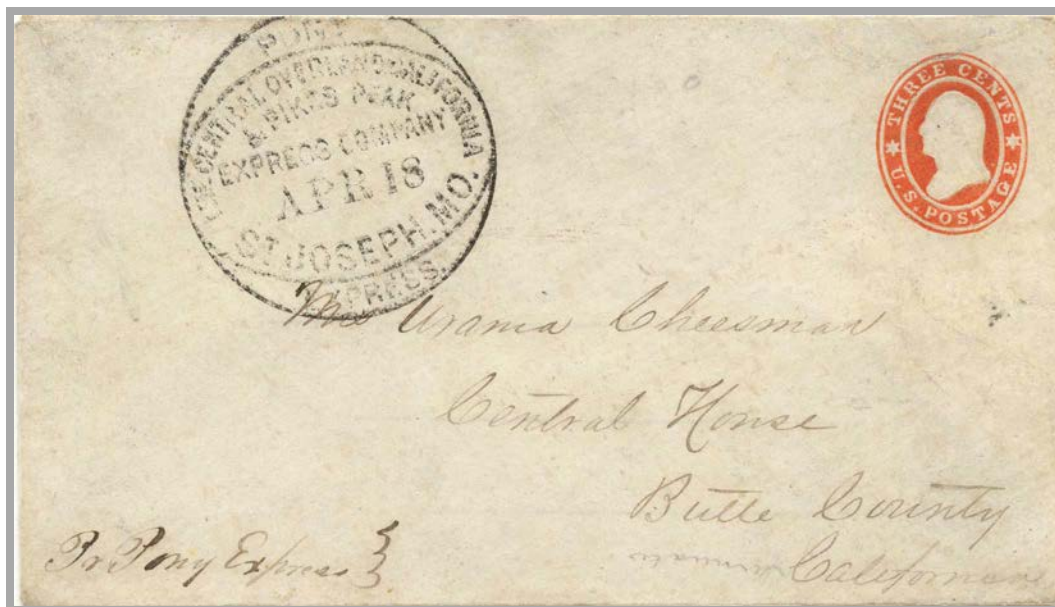 PONY
THE CENTRAL OVERLAND CALIFORNIA
& PIKES PEAK
EXPRESS COMPANY
APR 18
ST JOSEPH, MO.
EXPRESS.
THREE CENTS
U.S. POSTAGE
Mrs Urania Cheesman
Central House
Butte County
California
Pr Pony Express